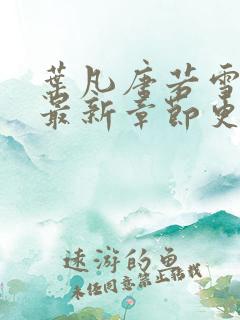 叶凡唐若雪
最新章节史
远游的鱼
未经同意禁止转载